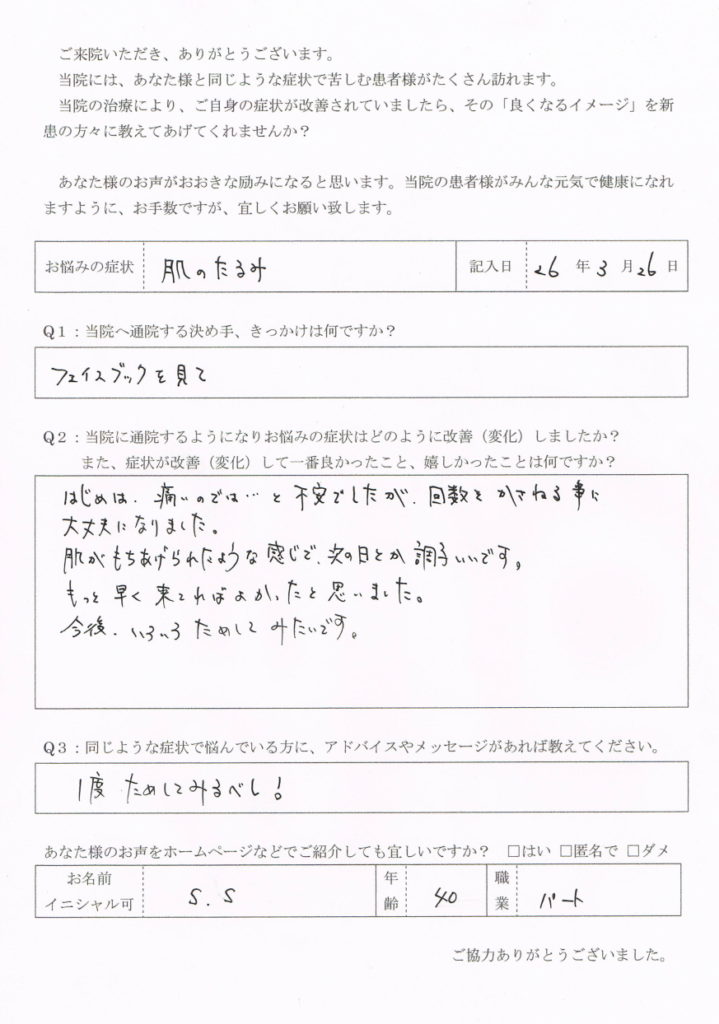 ご来院いただき、ありがとうございます。
当院には、あなた様と同じような症状で苦しむ患者様がたくさん訪れます。
当院の治療により、ご自身の症状が改善されていましたら、その「良くなるイメージ」を新
患の方々に教えてあげてくれませんか？
あなた様のお声がおおきな励みになると思います。当院の患者様がみんな元気で健康になれ
ますように、お手数ですが、宜しくお願い致します。
お悩みの症状 肌のたるみ 記入日 26 年 3 月 26 日
Q1：当院へ通院する決め手、きっかけは何ですか？
フェイスブックを見て
Q2：当院に通院するようになりお悩みの症状はどのように改善（変化）しましたか？
また、症状が改善（変化）して一番良かったこと、嬉しかったことは何ですか？
はじめは、痛いのでは…と不安でしたが、回数をかさねる事に
大丈夫になりました。
肌がもちあげられたような感じで、次の日とか調子いいです。
もっと早く来てればよかったと思いました。
今後、いろいろためしてみたいです。
Q3：同じような症状で悩んでいる方に、アドバイスやメッセージがあれば教えてください。
1度ためしてみるべし！
あなた様のお声をホームページなどでご紹介しても宜しいですか？ □はい □匿名で □ダメ
お名前 イニシャル可 S.S 年齢 40 職業 パート
ご協力ありがとうございました。